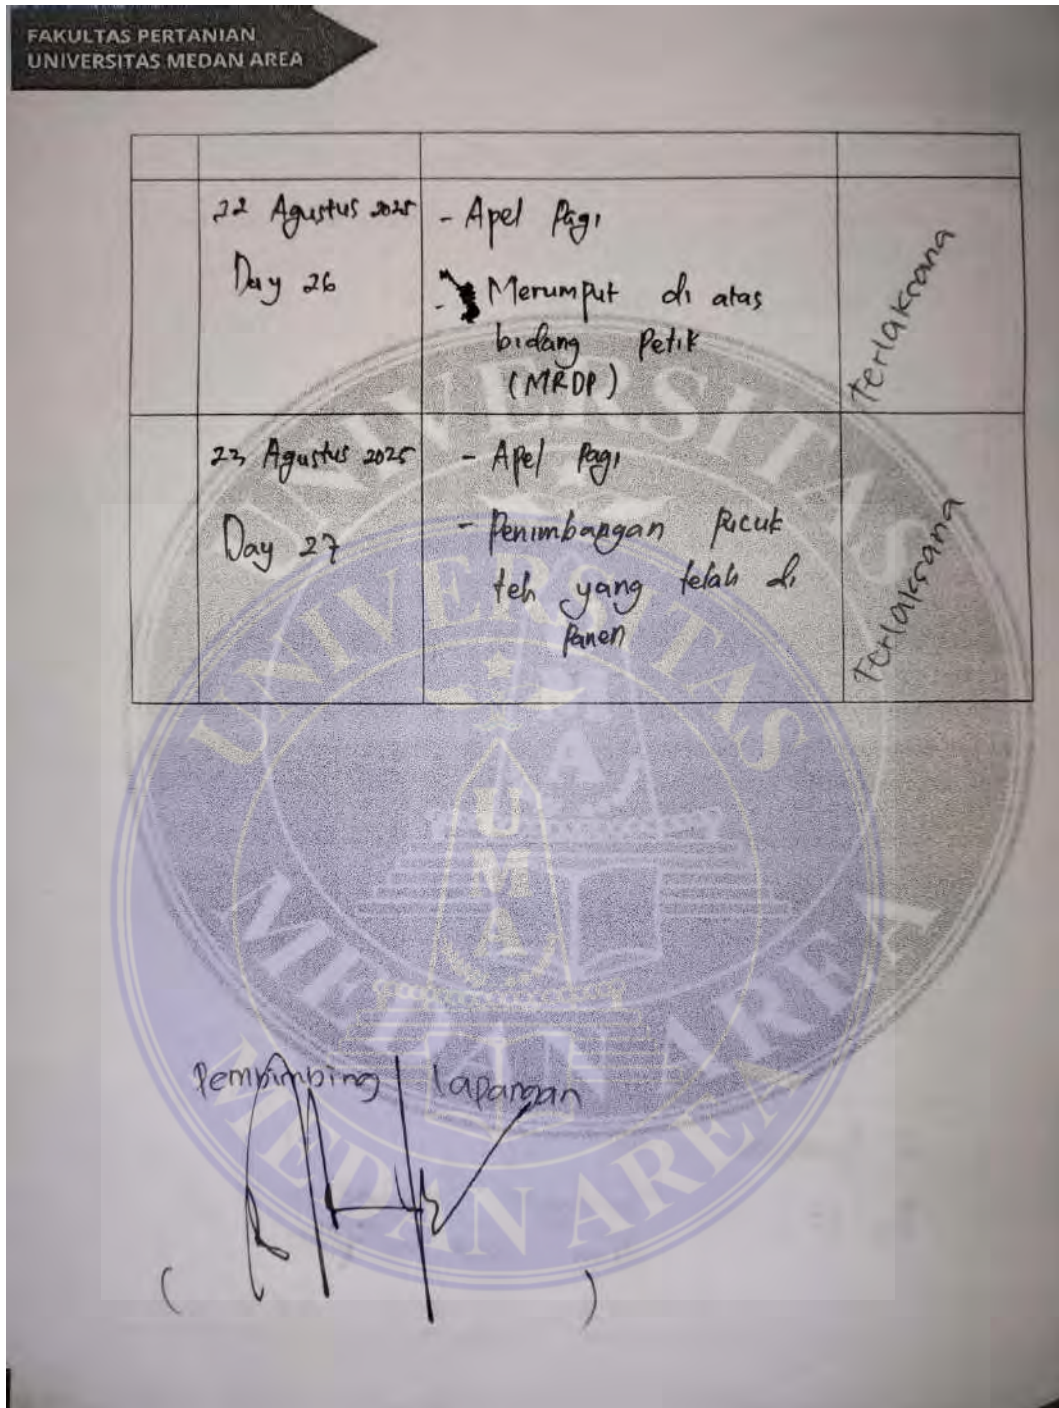 FAKULTAS PERTANIAN
UNIVERSITAS MEDAN AREA
22 Agustus 2025
Day 26
- Apel Pagi
- Merumput di atas
bidang Petik
(MRDP)
Terlaksana
23 Agustus 2025
Day 27
- Apel Pagi
- Penimbangan Pucuk
teh yang telah di
Panen
Terlaksana
UNIVERSITAS
MEDAN AREA
UMA
UNIVERSITAS
MEDAN AREA
UMA
Pembimbing Lapangan
( )